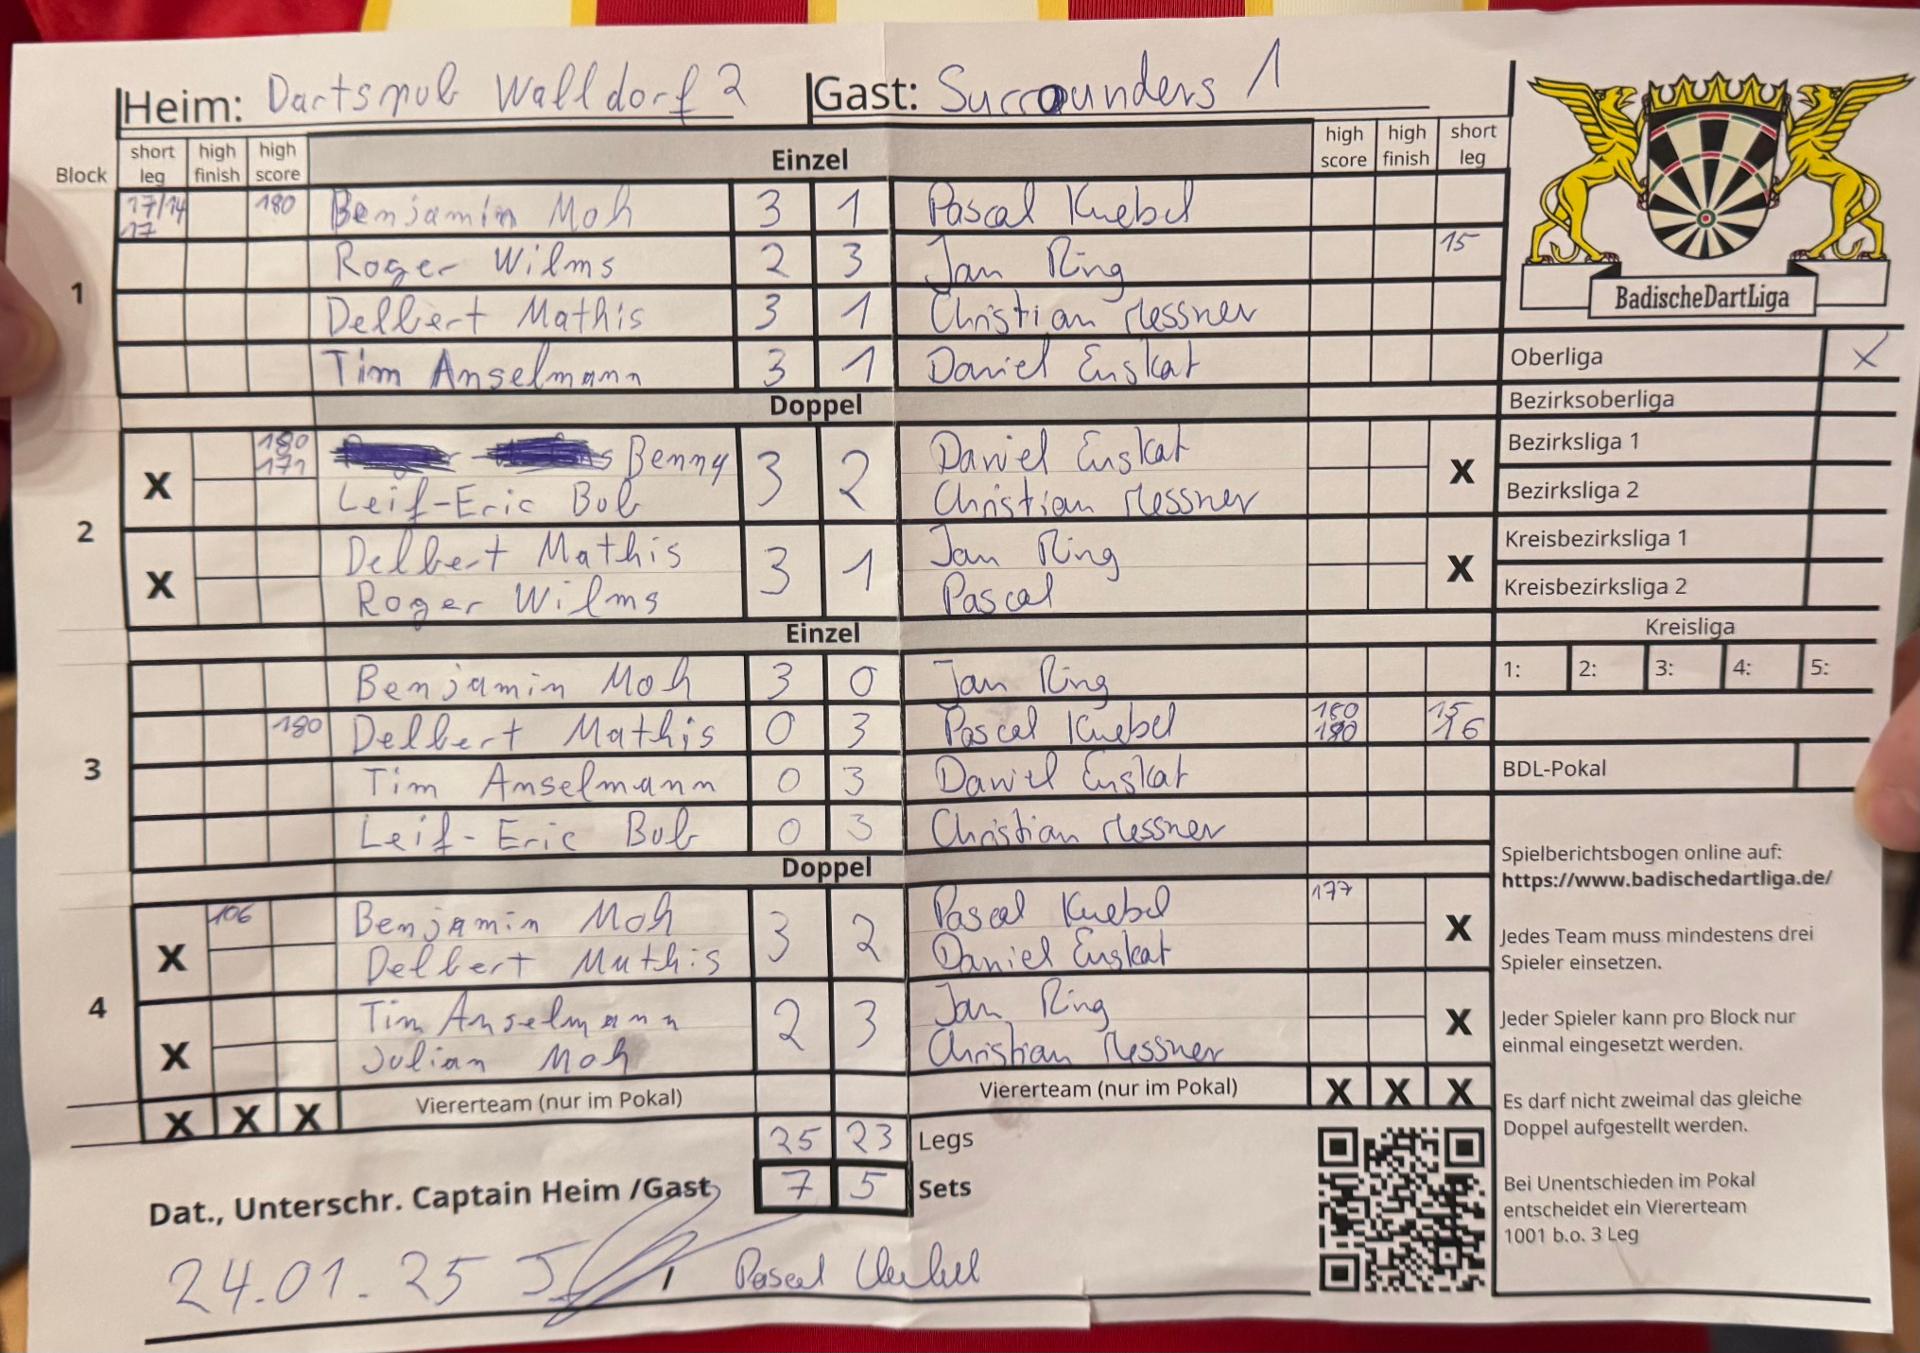 Heim: Dartspub Walldorf 2 Gast: Surrounders 1
Block short leg high finish high score Einzel high score high finish short leg
1
17/14 17 180 Benjamin Moh 3 1 Pascal Knebel
Roger Wilms 2 3 Jan Ring 15
Delbert Mathis 3 1 Christian Messner
Tim Anselmann 3 1 Daniel Enskat
Doppel
2
X 180 171 Benny 3 2 Daniel Enskat X
Leif-Eric Bob Christian Messner
X Delbert Mathis 3 1 Jan Ring X
Roger Wilms Pascal
Einzel
3
Benjamin Moh 3 0 Jan Ring
180 Delbert Mathis 0 3 Pascal Knebel 180 180 15 16
Tim Anselmann 0 3 Daniel Enskat
Leif-Eric Bob 0 3 Christian Messner
Doppel
4
X 106 Benjamin Moh 3 2 Pascal Knebel 177 X
Delbert Mathis Daniel Enskat
X Tim Anselmann 2 3 Jan Ring X
Julian Moh Christian Messner
X X X Viererteam (nur im Pokal) Viererteam (nur im Pokal) X X X
25 23 Legs
7 5 Sets
Dat., Unterschr. Captain Heim /Gast
24.01.25 / Pascal Knebel
BadischeDartLiga
Oberliga X
Bezirksoberliga
Bezirksliga 1
Bezirksliga 2
Kreisbezirksliga 1
Kreisbezirksliga 2
Kreisliga
1: 2: 3: 4: 5:
BDL-Pokal
Spielberichtsbogen online auf:
https://www.badischedartliga.de/
Jedes Team muss mindestens drei
Spieler einsetzen.
Jeder Spieler kann pro Block nur
einmal eingesetzt werden.
Es darf nicht zweimal das gleiche
Doppel aufgestellt werden.
Bei Unentschieden im Pokal
entscheidet ein Viererteam
1001 b.o. 3 Leg